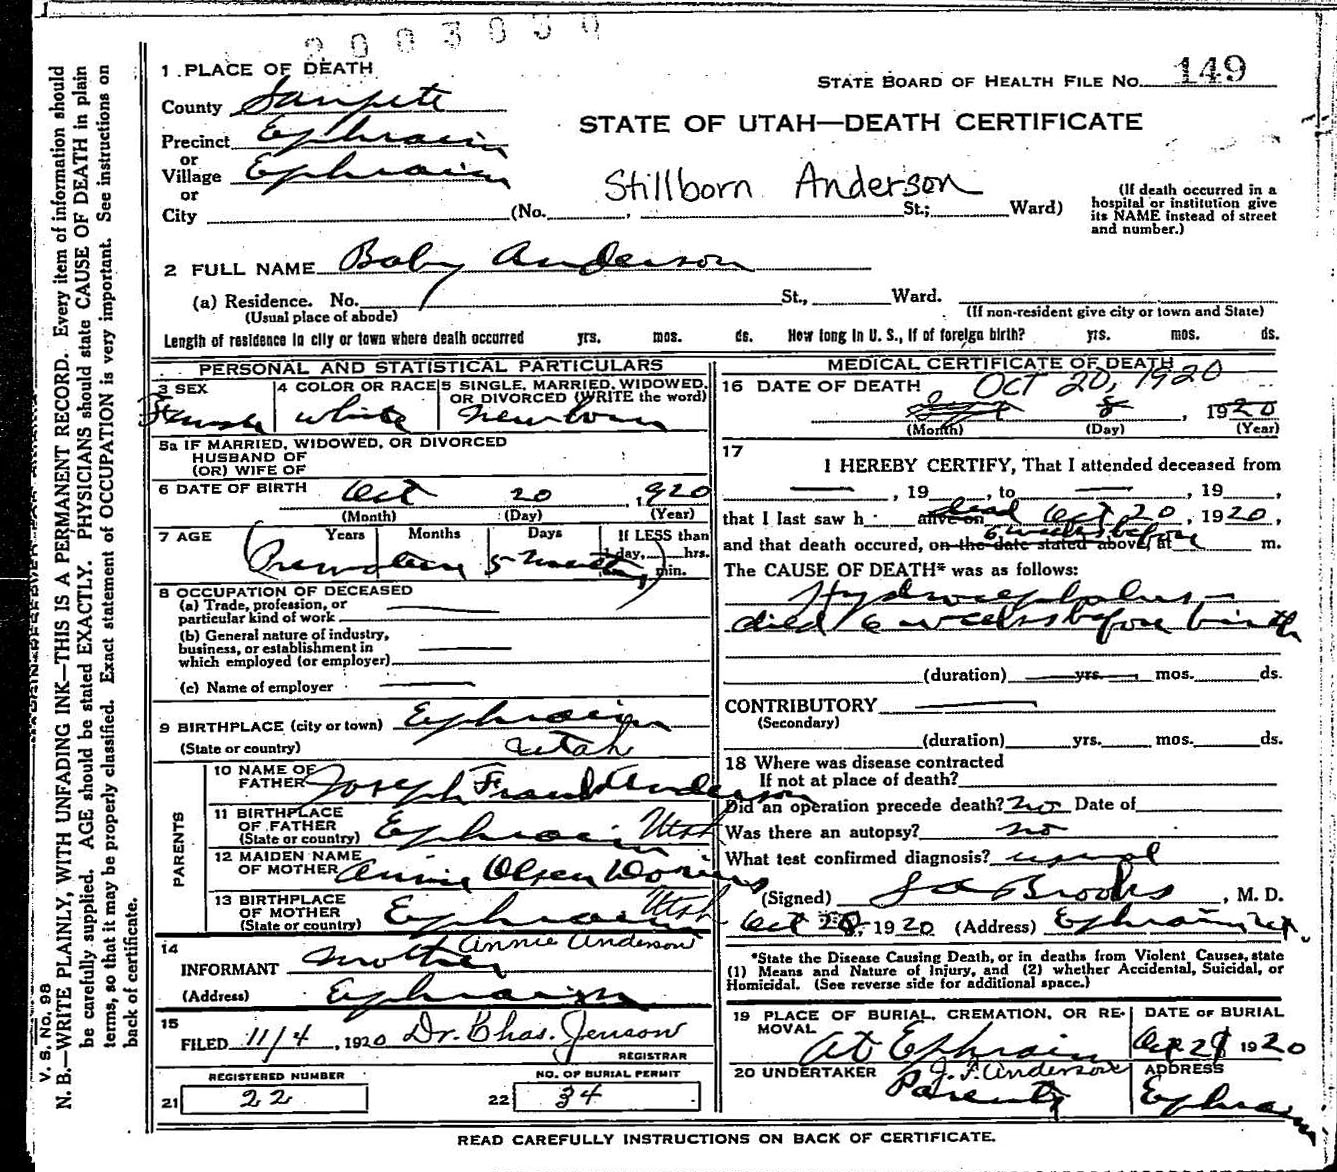 2003030
1 .PLACE OF DEATH
STATE BOARD OF HEALTH FILE No. 149
County Sanpete
STATE OF UTAH—DEATH CERTIFICATE
Precinct Ephraim
or
Village Ephraim
Stillborn Anderson
or
City (No. , St.; Ward)
(If death occurred in a
hospital or institution give
its NAME instead of street
and number.)
2 FULL NAME Baby Anderson
(a) Residence. No. St., Ward.
(Usual place of abode) (If non-resident give city or town and State)
Length of residence in city or town where death occurred yrs. mos. ds. How long in U. S., if of foreign birth? yrs. mos. ds.
PERSONAL AND STATISTICAL PARTICULARS
3 SEX 4 COLOR OR RACE 5 SINGLE, MARRIED, WIDOWED,
OR DIVORCED (WRITE the word)
Female white newborn
5a IF MARRIED, WIDOWED, OR DIVORCED
HUSBAND OF
(OR) WIFE OF
6 DATE OF BIRTH Oct 20 , 1920
(Month) (Day) (Year)
7 AGE Years Months Days If LESS than
1 day, hrs.
(Premature 5 months) min.
8 OCCUPATION OF DECEASED
(a) Trade, profession, or
particular kind of work
(b) General nature of industry,
business, or establishment in
which employed (or employer)
(c) Name of employer
9 BIRTHPLACE (city or town) Ephraim
(State or country) Utah
PARENTS
10 NAME OF
FATHER Joseph Frank Anderson
11 BIRTHPLACE
OF FATHER
(State or country) Ephraim Utah
12 MAIDEN NAME
OF MOTHER Annie Olsen Dorius
13 BIRTHPLACE
OF MOTHER
(State or country) Ephraim Utah
14
INFORMANT Mother Annie Anderson
(Address) Ephraim
15
FILED 11/4 , 1920 Dr. Chas. Jenson
REGISTRAR
REGISTERED NUMBER NO. OF BURIAL PERMIT
21 22 22 34
MEDICAL CERTIFICATE OF DEATH
16 DATE OF DEATH OCT 20, 1920
8 , 1920
(Month) (Day) (Year)
17
I HEREBY CERTIFY, That I attended deceased from
, 19 , to , 19 ,
that I last saw h alive on dead Oct 20 , 1920 ,
6 weeks before
and that death occured, on the date stated above, at m.
The CAUSE OF DEATH* was as follows:
Hydrocephalus—
died 6 weeks before birth
(duration) yrs. mos. ds.
CONTRIBUTORY
(Secondary)
(duration) yrs. mos. ds.
18 Where was disease contracted
If not at place of death?
Did an operation precede death? no Date of
Was there an autopsy? no
What test confirmed diagnosis? usual
(Signed) Brooks , M. D.
Oct 28, 1920 (Address) Ephraim Ut.
*State the Disease Causing Death, or in deaths from Violent Causes, state
(1) Means and Nature of Injury, and (2) whether Accidental, Suicidal, or
Homicidal. (See reverse side for additional space.)
19 PLACE OF BURIAL, CREMATION, OR RE-
MOVAL
At Ephraim
DATE OF BURIAL
Oct 21 1920
20 UNDERTAKER J. F. Anderson
Parents
ADDRESS
Ephraim
READ CAREFULLY INSTRUCTIONS ON BACK OF CERTIFICATE.
V. S. No. 98
N. B.—WRITE PLAINLY, WITH UNFADING INK—THIS IS A PERMANENT RECORD. Every item of information should
be carefully supplied. AGE should be stated EXACTLY. PHYSICIANS should state CAUSE OF DEATH in plain
terms, so that it may be properly classified. Exact statement of OCCUPATION is very important. See instructions on
back of certificate.